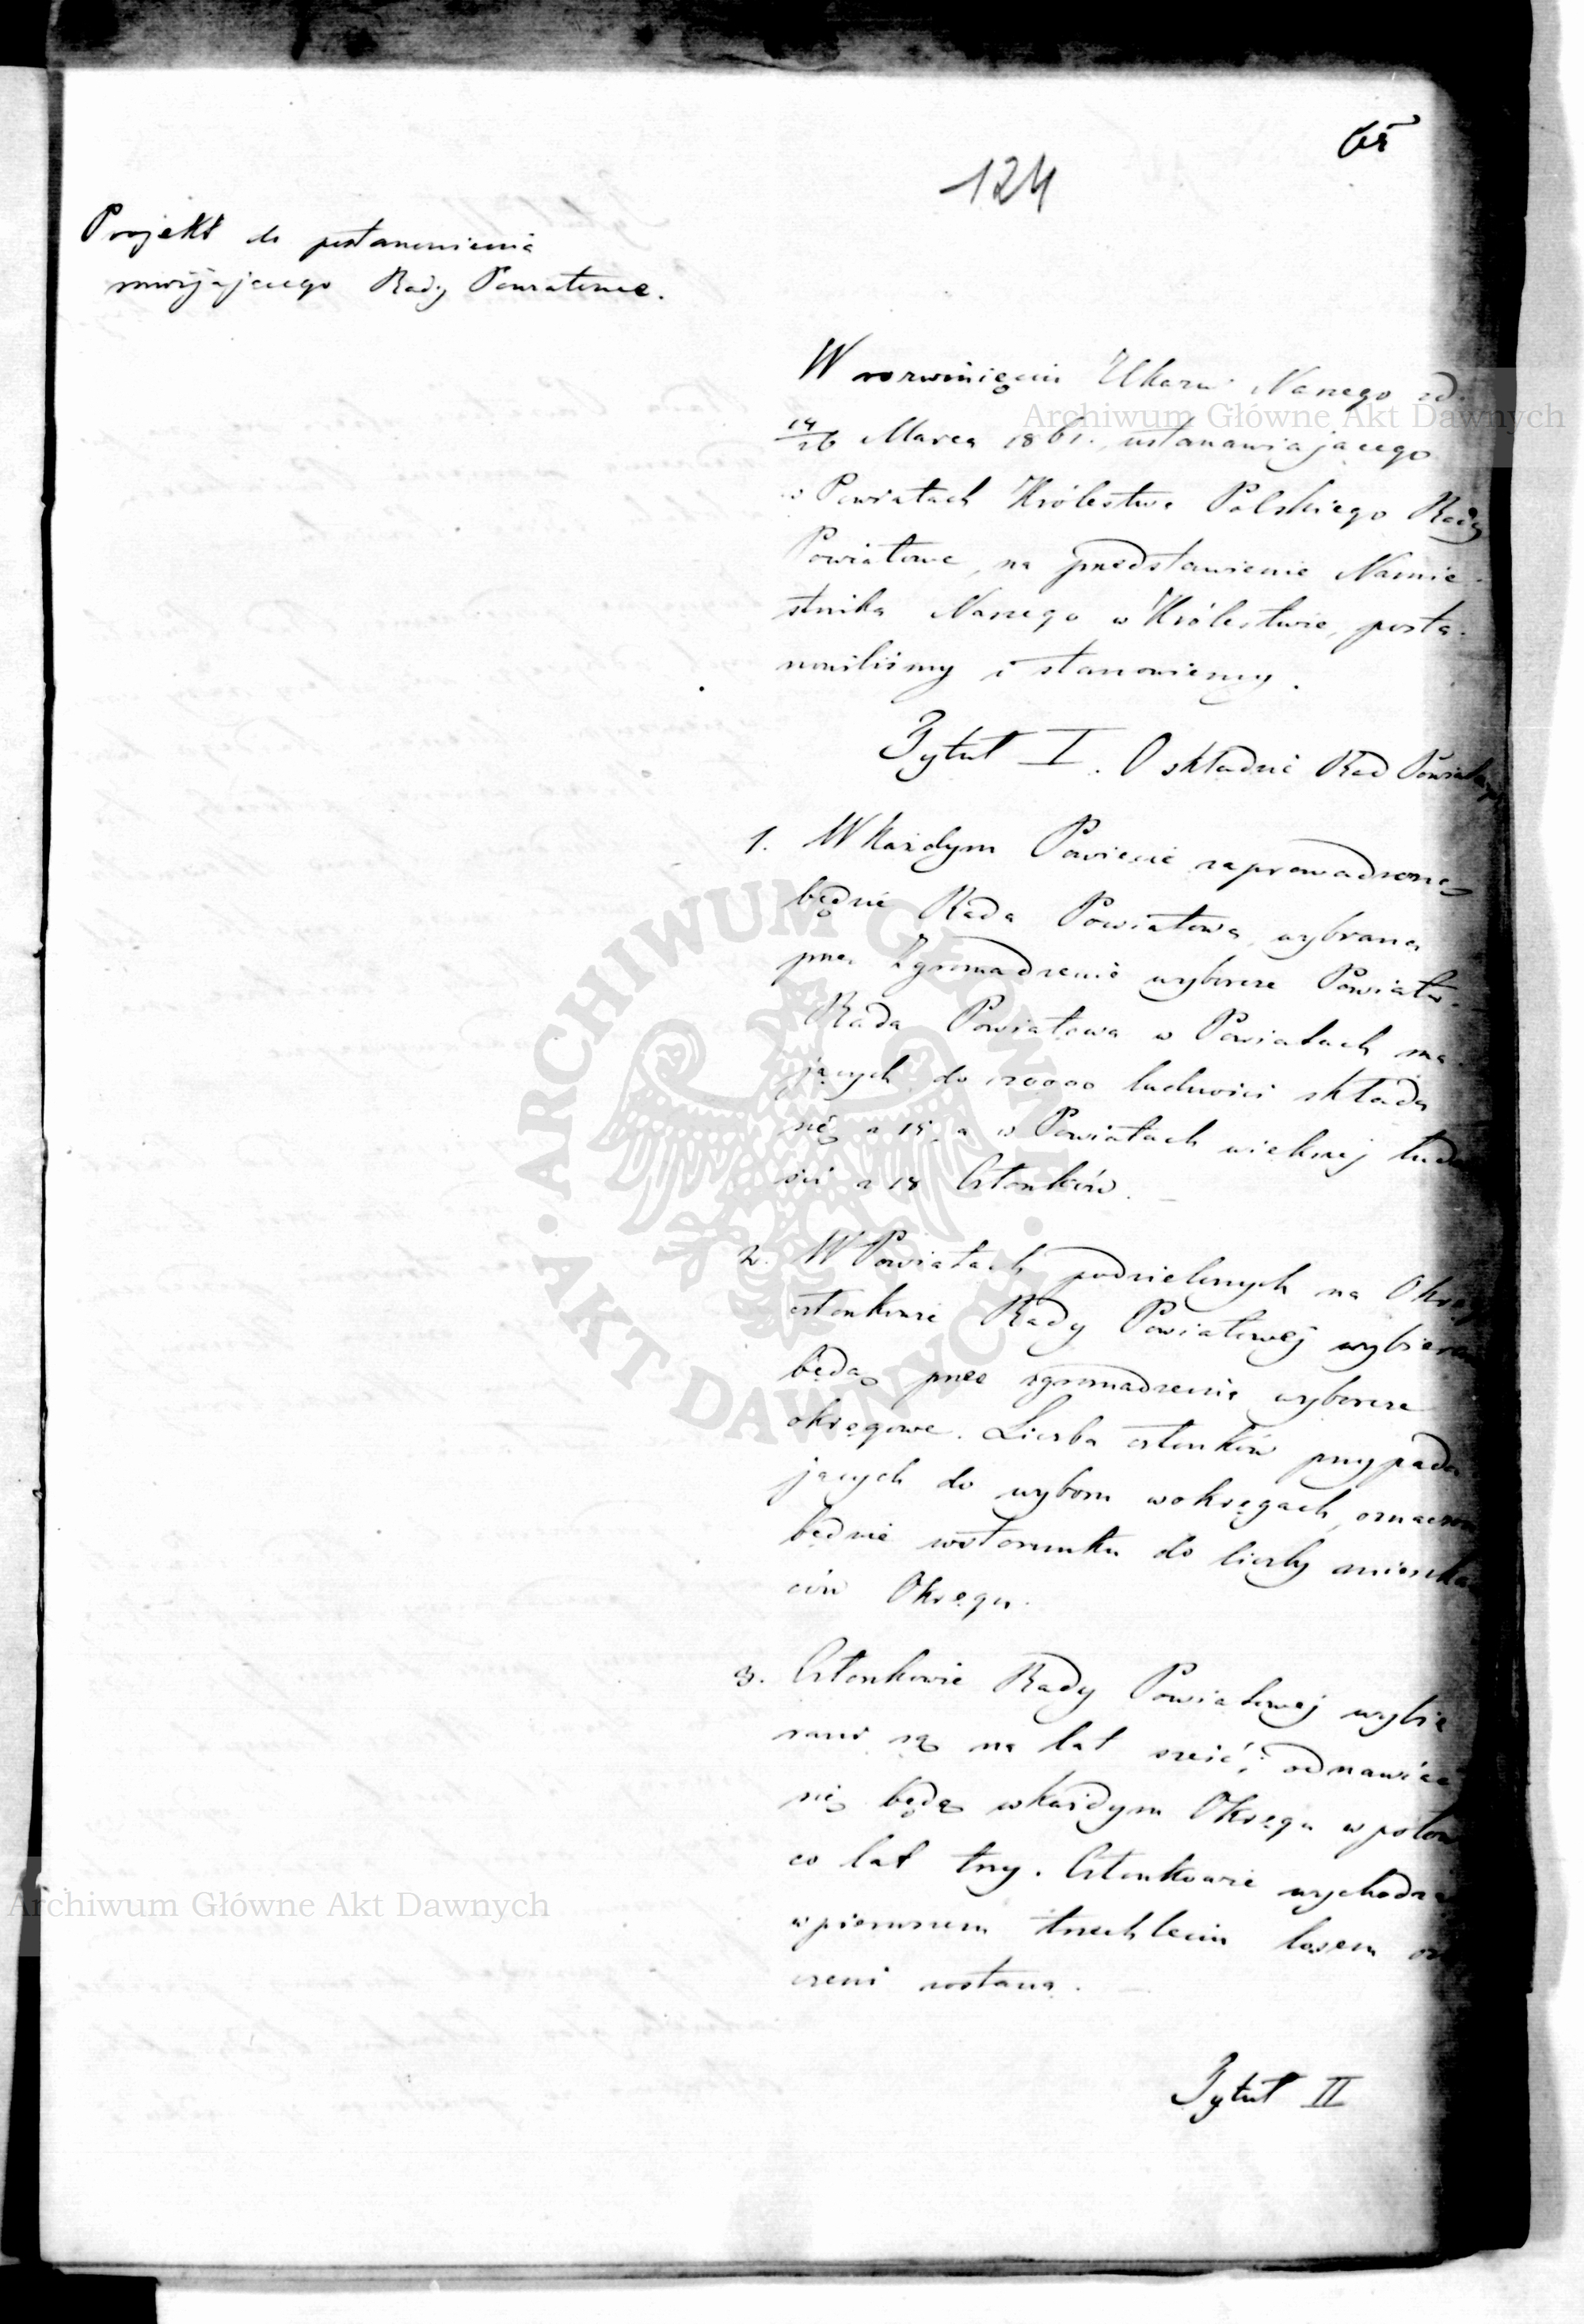 65
124
Projekt do postanowienia
rozwijającego Rady Powiatowe.
W rozwinięciu Ukazu Naszego z d.
14/26 Marca 1861. ustanawiającego
w Powiatach Królestwa Polskiego Rady
Powiatowe, na przedstawienie Namie-
stnika Naszego w Królestwie, posta-
nowiliśmy i stanowiemy.
Tytuł I. O składzie Rad Powiatowych
1. W każdym Powiecie zaprowadzoną
będzie Rada Powiatowa, wybrana
przez Zgromadzenie wyborcze Powiatu.
Rada Powiatowa w Powiatach ma-
jących do ludności składa
się z 15, a w Powiatach większej ludno
ści z 18 Członków.
2. W Powiatach podzielonych na Okręgi
członkowie Rady Powiatowej wybierani
będą przez zgromadzenia wyborcze
okręgowe. Liczba członków przypada
jących do wyboru w okręgach, oznaczona
będzie w stosunku do liczby mieszkań
ców Okręgu.
3. Członkowie Rady Powiatowej wybie
rani są na lat sześć; odnawiać
się będą w każdym Okręgu w połowie
co lat trzy. Członkowie wychodzący
w pierwszem trzechleciu losem ozna
czeni zostaną.
Tytuł II
Archiwum Główne Akt Dawnych
ARCHIWUM GŁÓWNE AKT DAWNYCH
Archiwum Główne Akt Dawnych